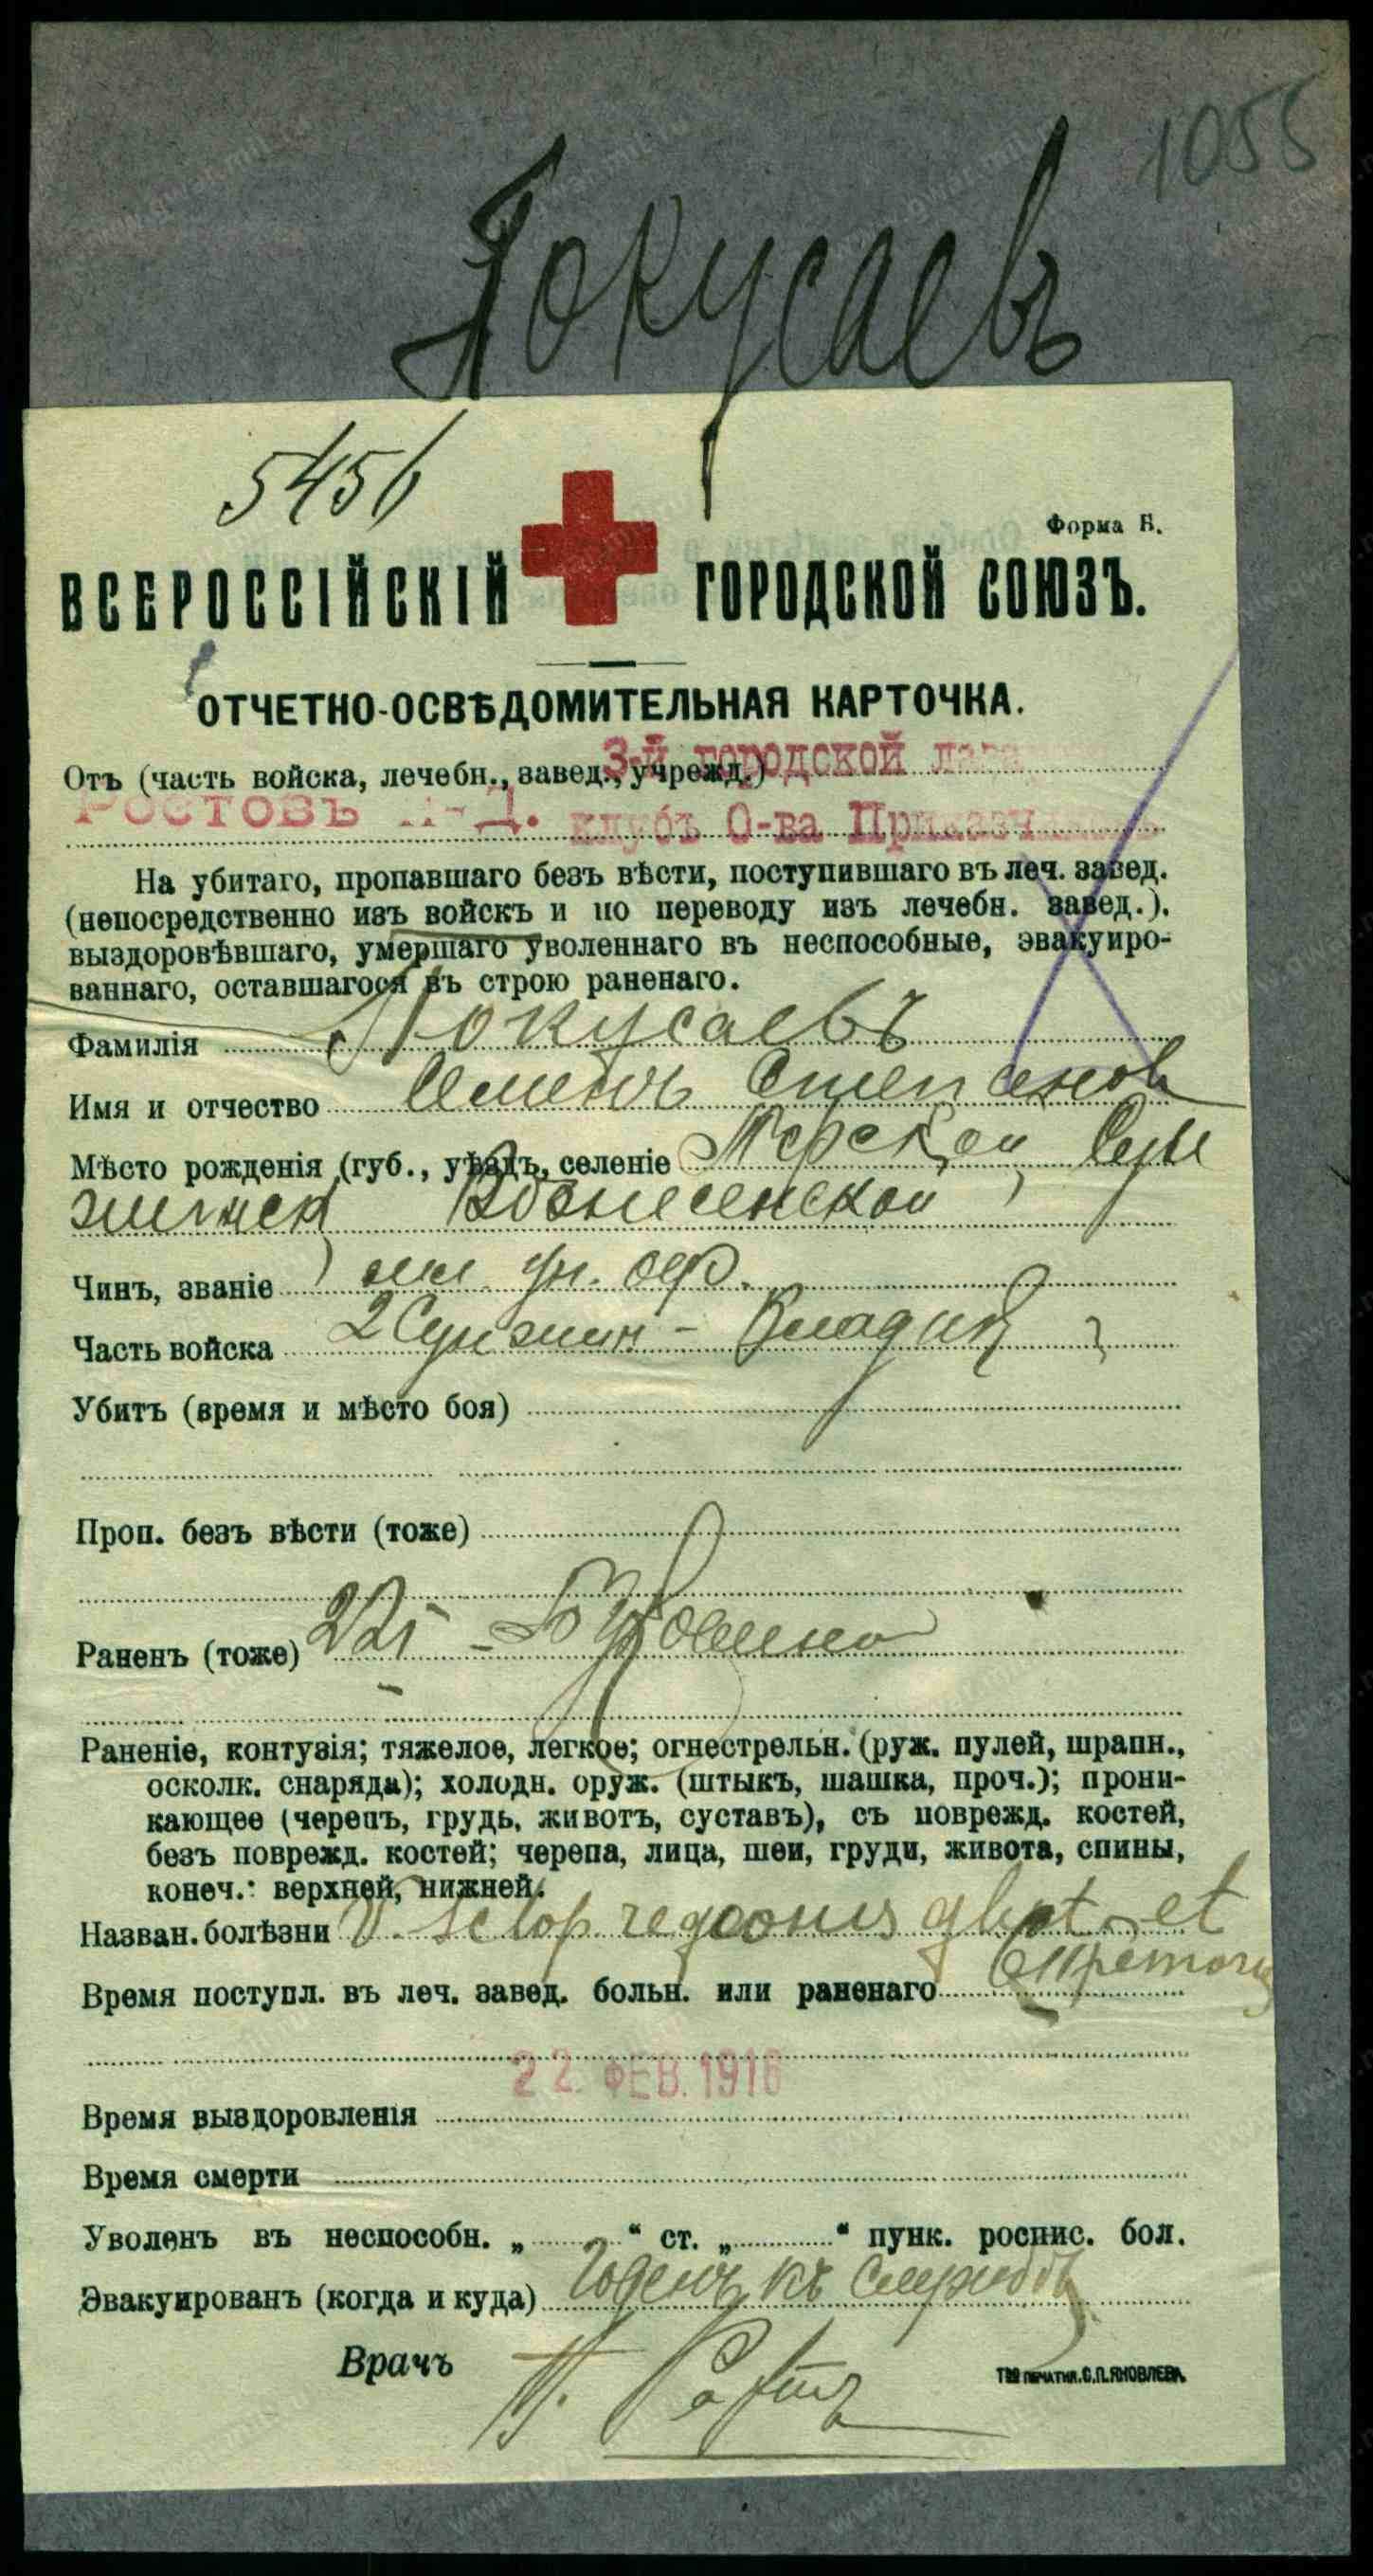 1055
Покусаевъ
5456
Форма В.
ВСЕРОССІЙСКІЙ ГОРОДСКОЙ СОЮЗЪ.
ОТЧЕТНО-ОСВѢДОМИТЕЛЬНАЯ КАРТОЧКА.
3-й городской
Отъ (часть войска, лечебн., завед., учрежд.)
Ростовъ н-Д. клубъ О-ва
На убитаго, пропавшаго безъ вѣсти, поступившаго въ леч. завед.
(непосредственно изъ войскъ и по переводу изъ лечебн. завед.).
выздоровѣвшаго, умершаго уволеннаго въ неспособные, эвакуиро-
ваннаго, оставшагося въ строю раненаго.
Фамилія Покусаевъ
Имя и отчество Семенъ Степанов
Мѣсто рожденія (губ., уѣздъ, селеніе Терской, Сун
женск, Вознесенской
Чинъ, званіе мл. ун. оф.
Часть войска 2 Сунжин - Владик
Убитъ (время и мѣсто боя)
Проп. безъ вѣсти (тоже)
Раненъ (тоже) 22/I -
Раненіе, контузія; тяжелое, легкое; огнестрельн. (руж. пулей, шрапн.,
осколк. снаряда); холодн. оруж. (штыкъ, шашка, проч.); прони-
кающее (черепъ, грудь, животъ, суставъ), съ поврежд. костей,
безъ поврежд. костей; черепа, лица, шеи, груди, живота, спины,
конеч.: верхней, нижней.
Назван. болѣзни V. sclop. regionis glut. et
Время поступл. въ леч. завед. больн. или раненаго
22 ФЕВ. 1916
Время выздоровленія
Время смерти
Уволенъ въ неспособн. „ “ ст. „ “ пунк. роспис. бол.
Эвакуированъ (когда и куда) Годенъ къ службѣ
Врачъ
Т-во ПЕЧАТНИ. С.П.ЯКОВЛЕВА.